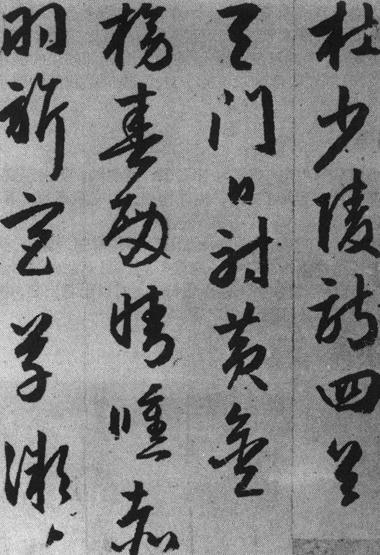 杜少陵詩四首
天門日射黃金
榜春殿晴曛赤
羽旂宮草微〻